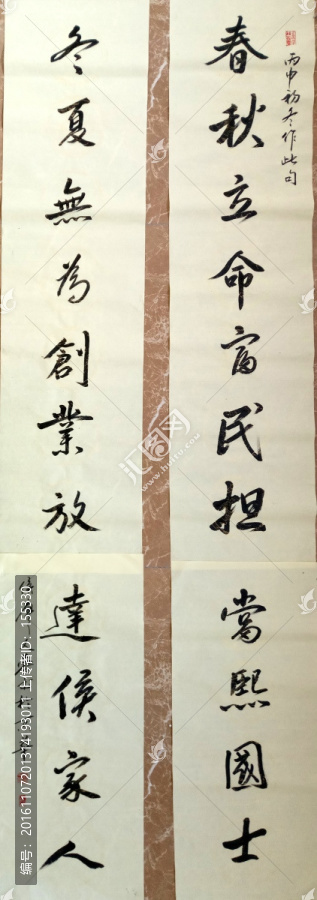 丙申初冬作此句
春秋立命富民担當熙國士
冬夏無為創業放達侯家人
汇图网
编号：20161107201314193011 上传者ID：155330